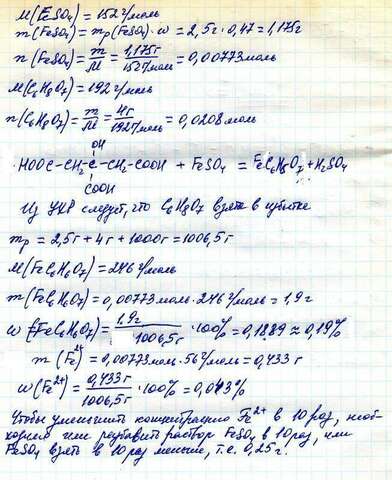 M(FeSO₄) = 152 г/моль
m(FeSO₄) = mр(FeSO₄)·w = 2,5г·0,47 = 1,175г
n(FeSO₄) = m/M = 1,175г/152г/моль = 0,00773 моль
M(C₆H₈O₇) = 192 г/моль
n(C₆H₈O₇) = m/M = 4г/192г/моль = 0,0208 моль
OH
HOOC-CH₂-C-CH₂-COOH + FeSO₄ = FeC₆H₆O₇ + H₂SO₄
COOH
Из УХР следует, что C₆H₈O₇ взята в избытке
mр = 2,5г + 4г + 1000г = 1006,5г
M(FeC₆H₆O₇) = 246 г/моль
m(FeC₆H₆O₇) = 0,00773 моль·246 г/моль = 1,9г
w(FeC₆H₆O₇) = 1,9г/1006,5г ·100% = 0,1889 ≈ 0,19%
m(Fe²⁺) = 0,00773 моль·56 г/моль = 0,433г
w(Fe²⁺) = 0,433г/1006,5г ·100% = 0,043%
Чтобы уменьшить концентрацию Fe²⁺ в 10 раз, необ-
ходимо или разбавить раствор FeSO₄ в 10 раз, или
FeSO₄ взять в 10 раз меньше, т.е. 0,25г.